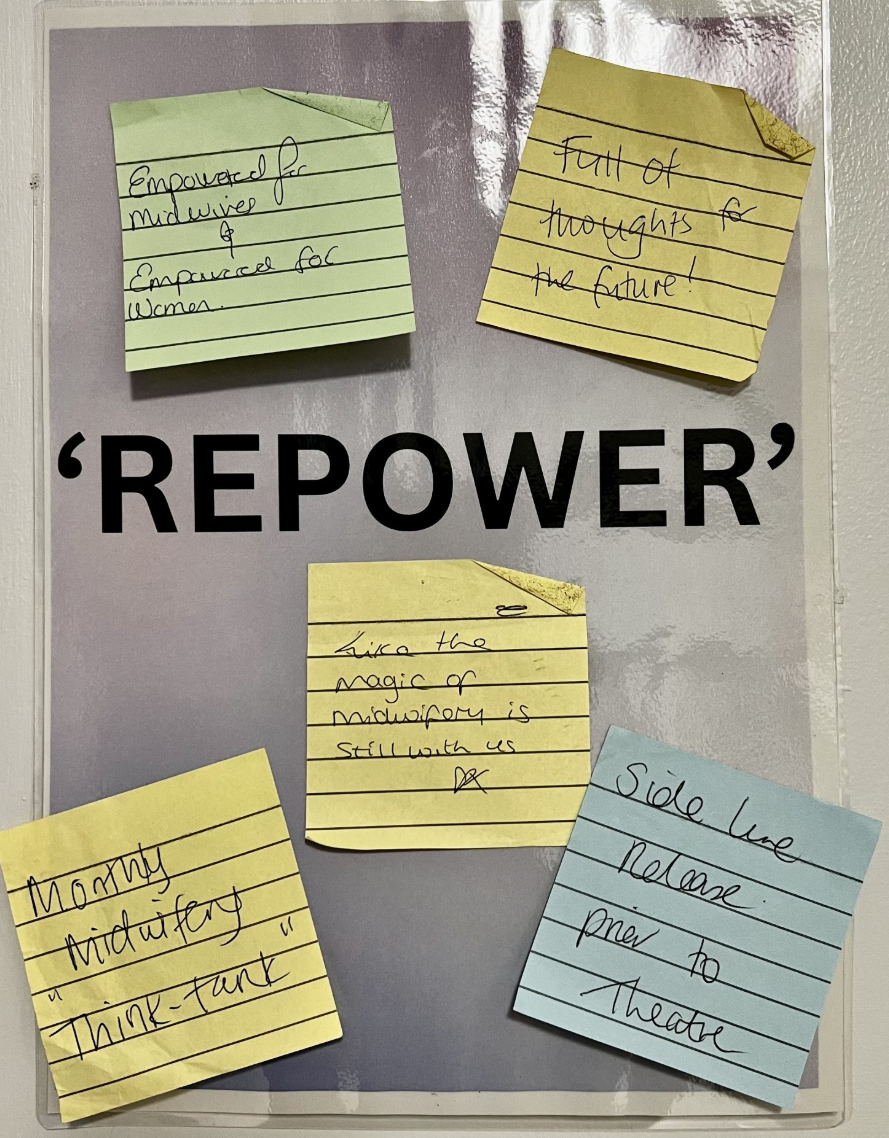 Empowered for
Midwives
&
Empowered for
Women.
Full of
thoughts for
the future!
‘REPOWER’
Like the
magic of
midwifery is
still with us
Monthly
Midwifery
"Think-tank"
Side line
Release
prior to
Theatre